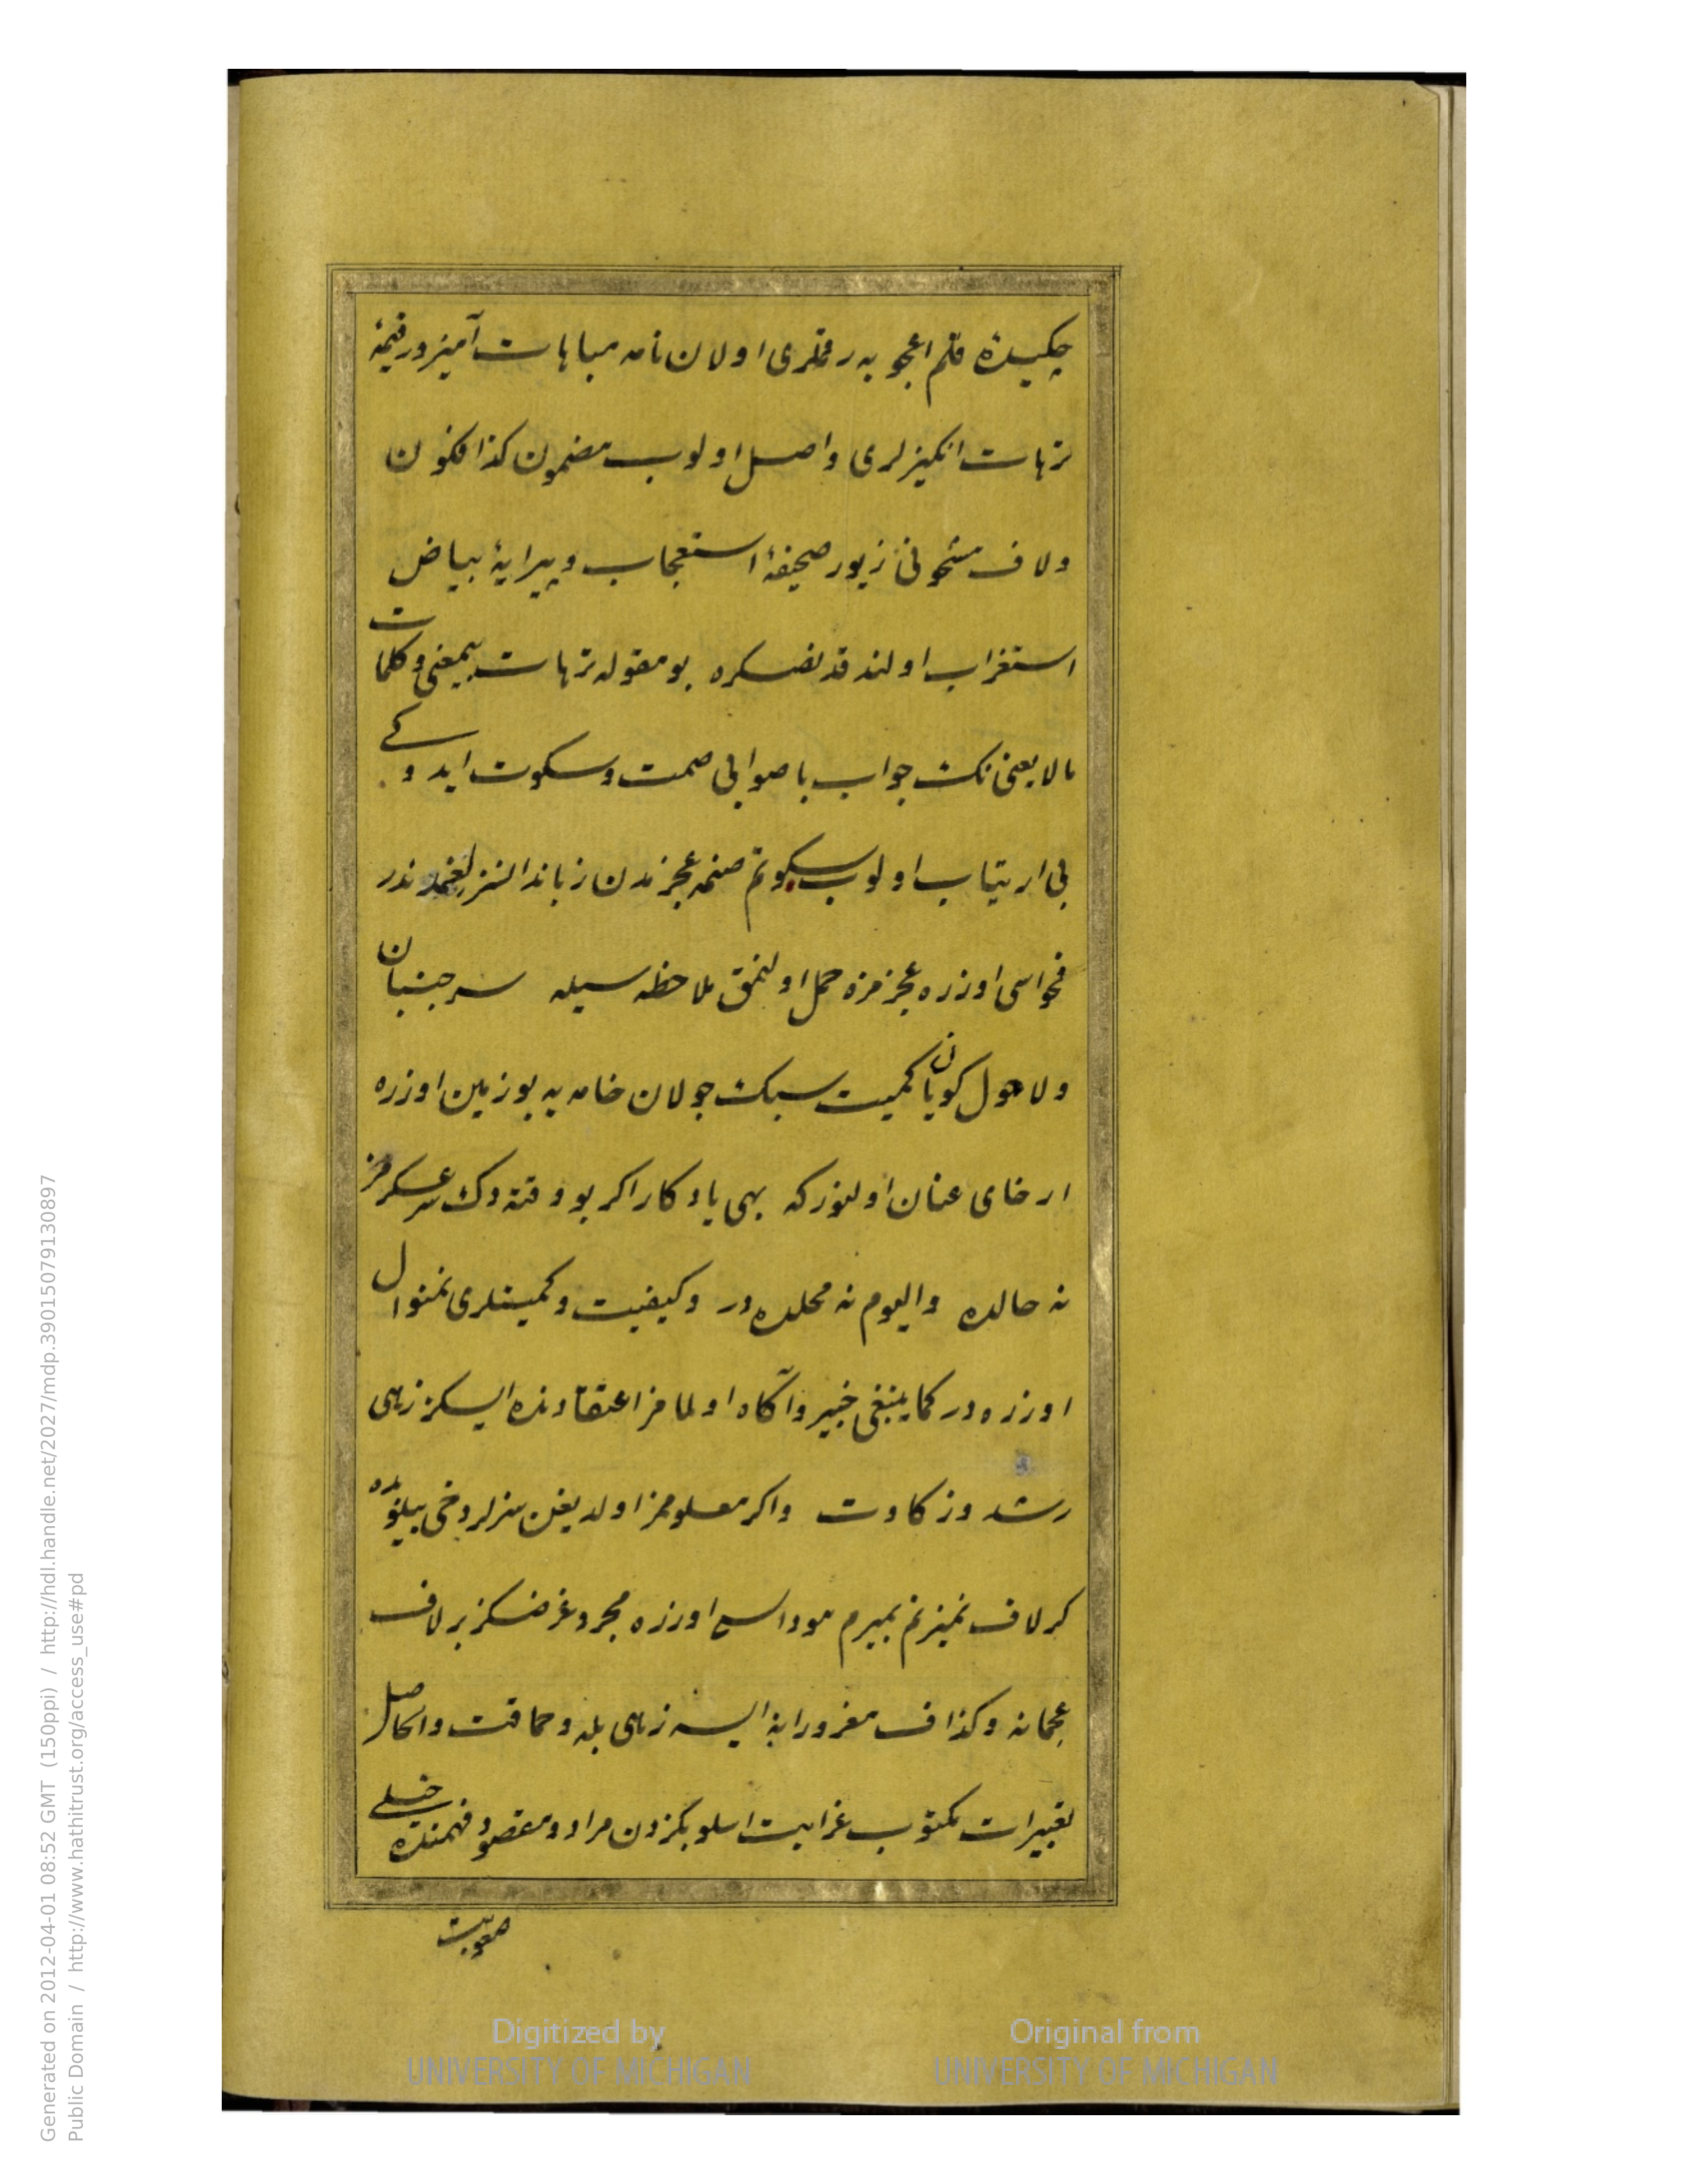 چكیدۀ قلم اعجوبه رقملری اولان نامه مباهات آمیز ورقیمۀ
ترهات انكیزلری واصل اولوب مضمون كذافكون
ولاف مشحونی زیور صحیفۀ استعجاب وپیرایۀ بیاض
استغراب اولندقدنصكره بو مقوله ترهات بیمعنی وكلمات
مالایعنی نك جواب باصوابی صمت وسكوت ایدوكی
بی ارتیاب اولوب سكوتم صنمه عجزندن زباندانسز لغمدندر
فحواسی اوزره عجزمزه حمل اولنمق ملاحظه سیله سرجنبان
ولاحول كویان كمیت سبك جولان خامه یه بو زمین اوزره
ارخای عنان اولنوركه بهی یادكار اكر بو وقته دك عسكرمز
نه حالده والیوم نه محلده در وكیفیت وكمیتلری نه منوال
اوزره در كماینبغی خبیر وآكاه اولمامز اعتقادنده ایسكز زهی
رشد وزكاوت واكر معلومكز اولدیغن سزلر دخی بیلورده
كر لاف نمیزنم بمیرم موداسی اوزره مجرد غرضكز بر لاف
عجمانه وكذاف مغرورانه ایسه زهی بله وحماقت والحاصل
تعبیرات مكتوب غرابت اسلوبكزدن مراد ومقصود فهمنده خیلی
صعوبت
Digitized by
UNIVERSITY OF MICHIGAN
Original from
UNIVERSITY OF MICHIGAN
Generated on 2012-04-01 08:52 GMT (150ppi) / http://hdl.handle.net/2027/mdp.39015079130897
Public Domain / http://www.hathitrust.org/access_use#pd